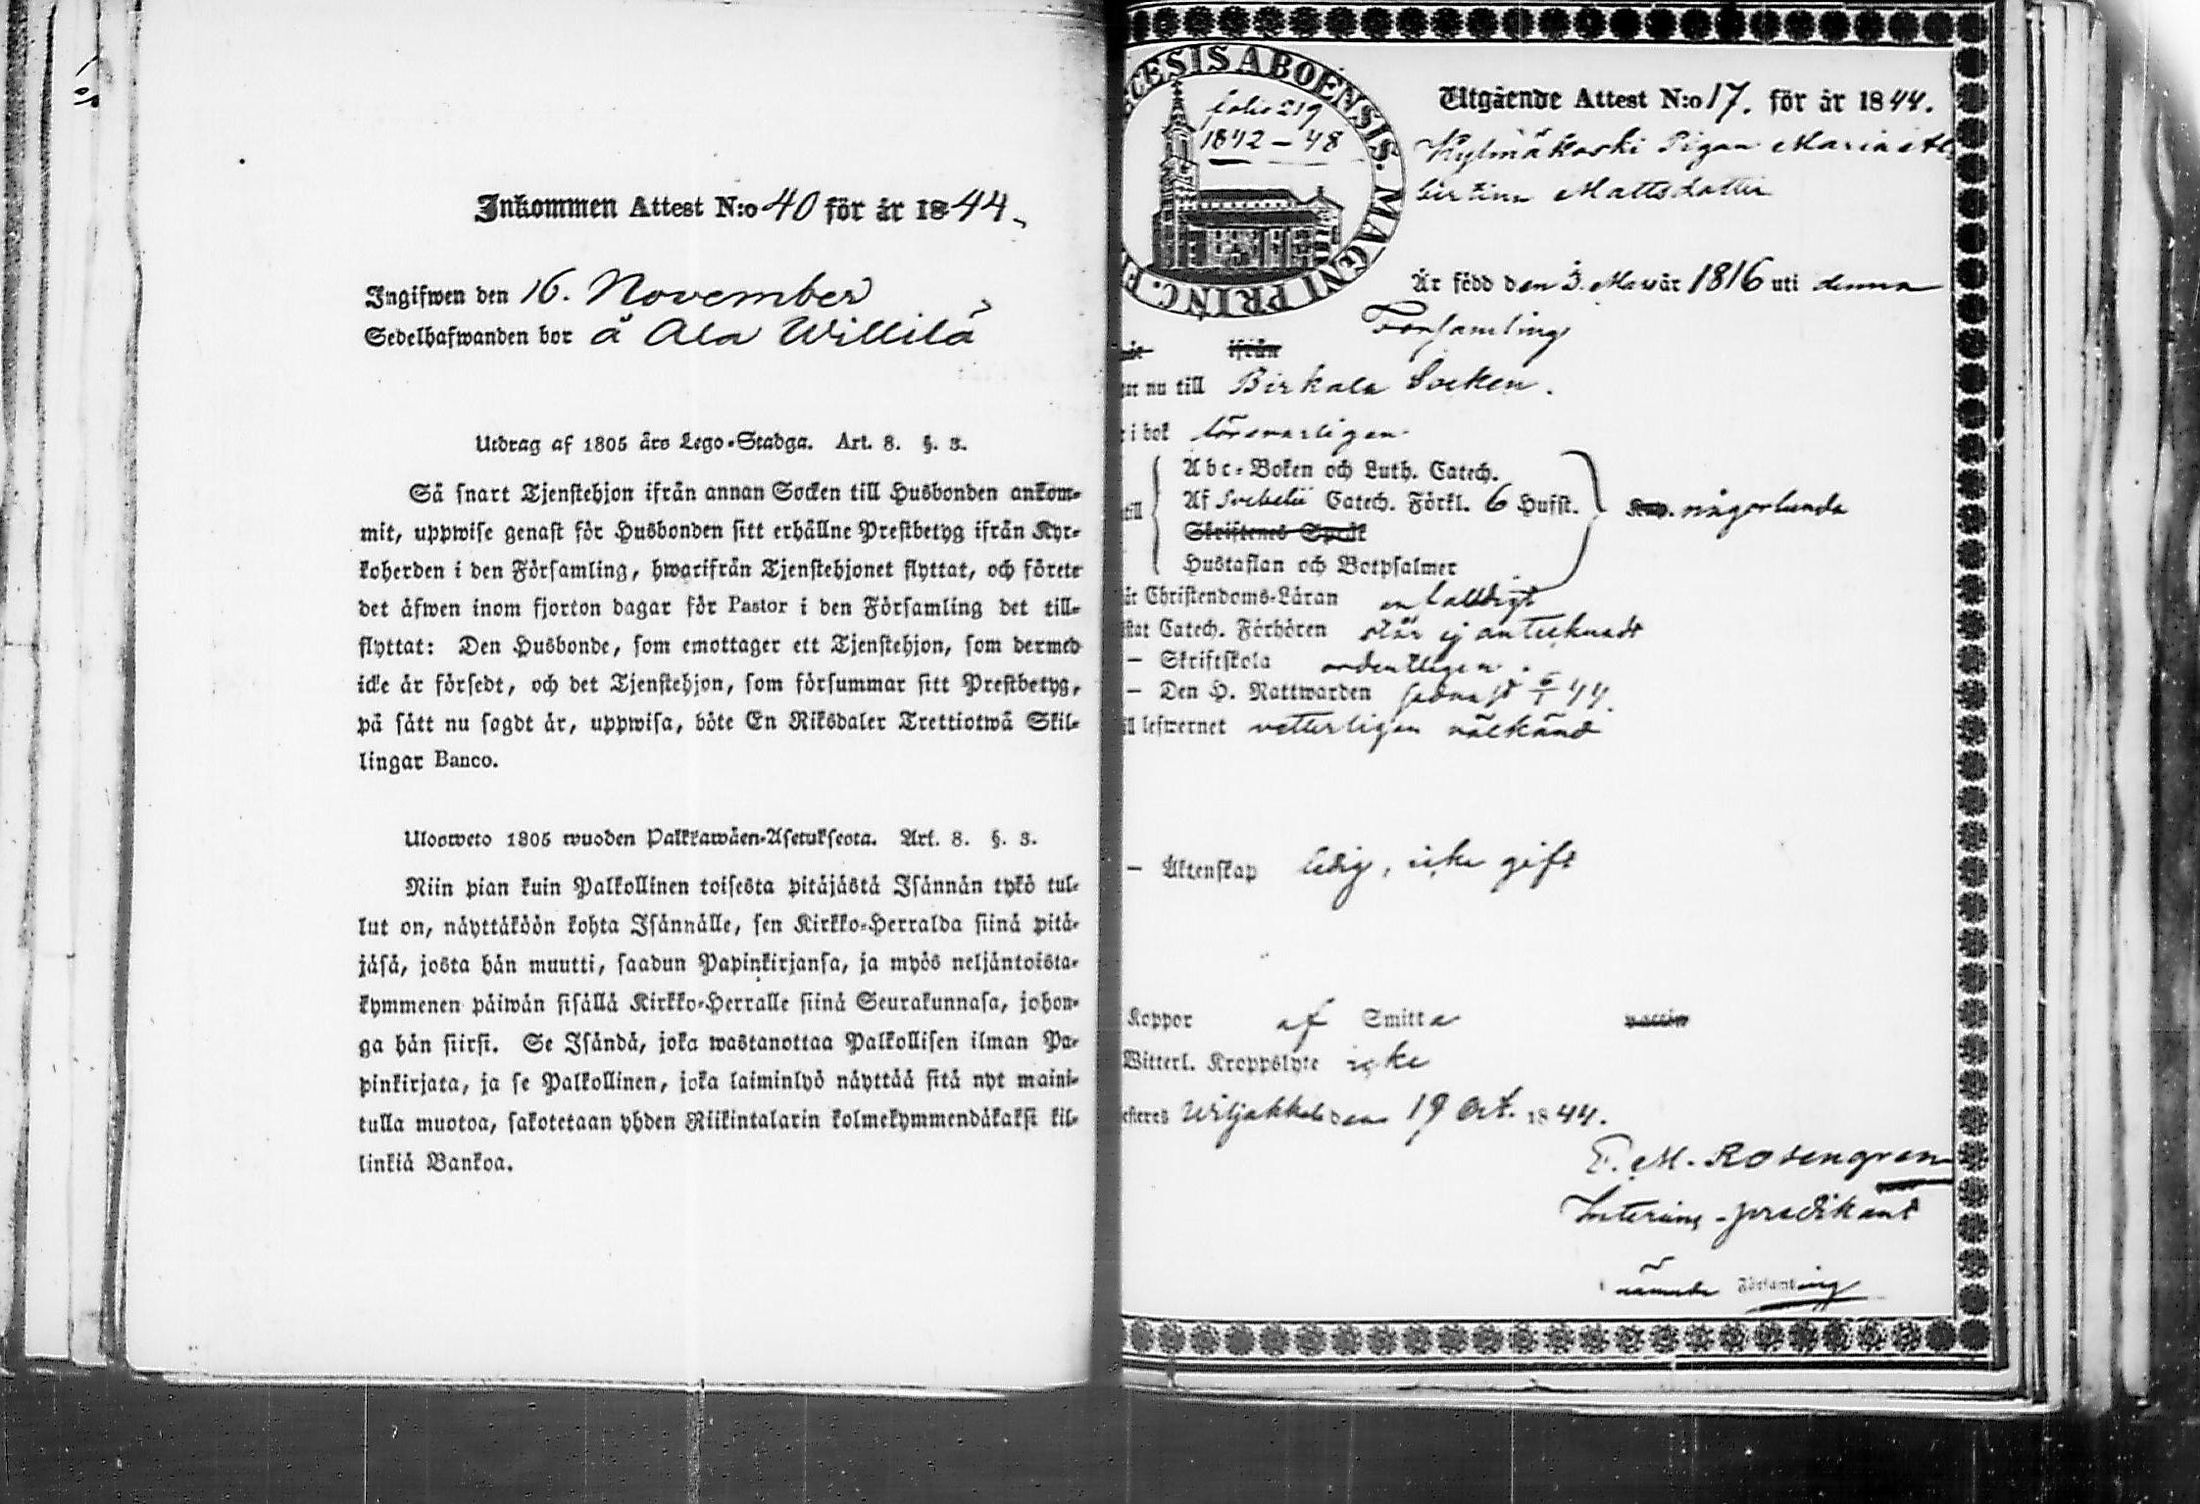 Inkommen Attest N:o 40 för år 1844.
Ingifwen den 16. November
Sedelhafwanden bor å Ala Willilä
Utdrag af 1805 års Lego-Stadga. Art. 8. §. 3.
Så snart Tjenstehjon ifrån annan Socken till Husbonden ankom-
mit, uppwise genast för Husbonden sitt erhållne Prestbetyg ifrån Kyr-
koherden i den Församling, hwarifrån Tjenstehjonet flyttat, och förete
det äfwen inom fjorton dagar för Pastor i den Församling det till-
flyttat: Den Husbonde, som emottager ett Tjenstehjon, som dermed
icke är försedt, och det Tjenstehjon, som försummar sitt Prestbetyg,
på sätt nu sagdt är, uppwisa, böte En Riksdaler Trettiotwå Skil-
lingar Banco.
Ulosweto 1805 wuoden Palkkawäen-Asetuksesta. Art. 8. §. 3.
Niin pian kuin Palkollinen toisesta pitäjästä Isännän tykö tul-
lut on, näyttäköön kohta Isännälle, sen Kirkko-Herralda siinä pitä-
jäsä, josta hän muutti, saadun Papinkirjansa, ja myös neljäntoista-
kymmenen päiwän sisällä Kirkko-Herralle siinä Seurakunnasa, johon-
ga hän siirsi. Se Isändä, joka wastanottaa Palkollisen ilman Pa-
pinkirjata, ja se Palkollinen, joka laiminlyö näyttää sitä nyt maini-
tulla muotoa, sakotetaan yhden Riikintalarin kolmekymmendäkaksi kil-
linkiä Bankoa.
CESIS ABOENSIS. MAGNI PRINC. F
folio 219
1842-48
Utgående Attest N:o 17. för år 1844.
Kylmäkoski Pigan Maria Al
bertina Mattsdotter
Är född den 3. Mars år 1816 uti denna
Församling
ifrån
nu till Birkala Socken.
i bok försvarligen
Abc-Boken och Luth. Catech.
Af Svebelii Catech. Förkl. 6 Hufst. någorlunda
Skriftenes Språk
Hustaflan och Botpsalmer
Christendoms-Läran enfalldigt
Catech. Förhören står ej antecknadt
– Skriftskola ordentligen
– Den H. Nattwarden sednast 44.
lefwernet vetterligen välkänd
– Äktenskap ledig, icke gift
Koppor af Smitta vaccin
Witterl. Kroppslyte icke
Wiljakkala den 19 Oct. 1844.
E. M. Rosengren
Interims-predikant
nämnde Församling